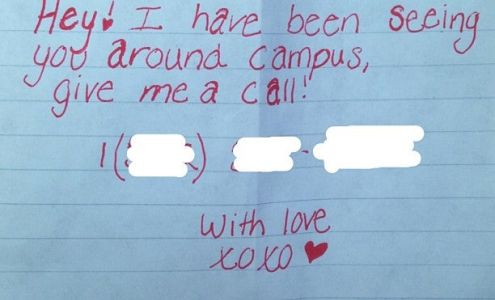 Hey! I have been seeing
you around campus,
give me a call!
1( ) -
With love
xoxo ♥